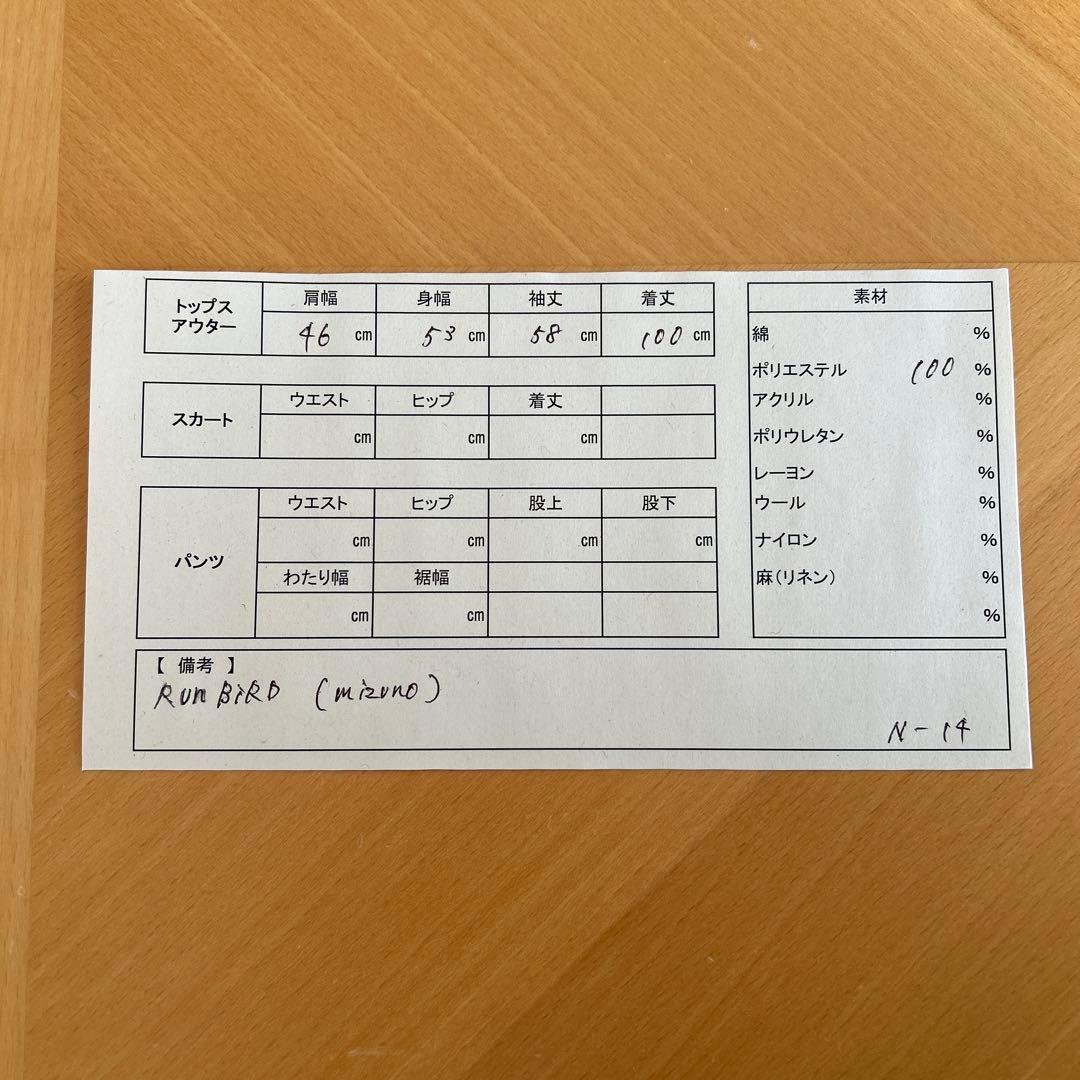 トップス
アウター
肩幅 身幅 袖丈 着丈
46 cm 53 cm 58 cm 100 cm
スカート
ウエスト ヒップ 着丈
cm cm cm
パンツ
ウエスト ヒップ 股上 股下
cm cm cm cm
わたり幅 裾幅
cm cm
素材
綿 %
ポリエステル 100 %
アクリル %
ポリウレタン %
レーヨン %
ウール %
ナイロン %
麻(リネン) %
%
【 備考 】
RUN BiRD (mizuno)
N-14